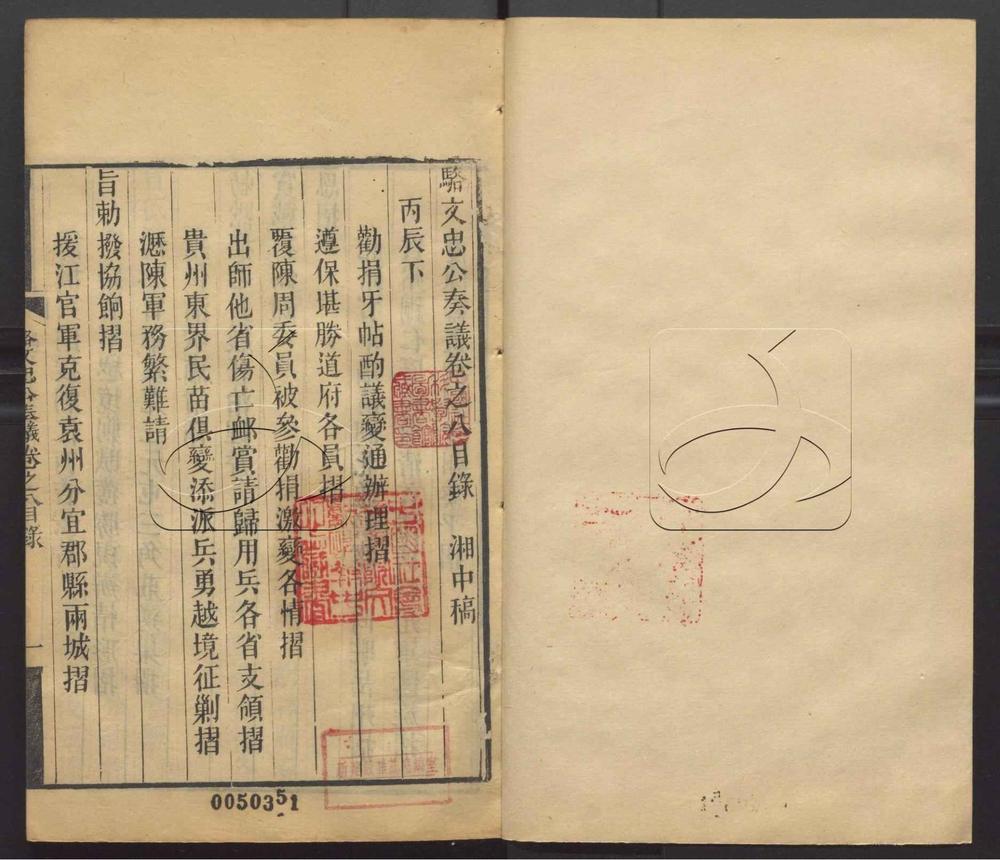 駱文忠公奏議卷之八目錄　湘中稿
丙辰下
勸捐牙帖酌議變通辦理摺
遵保堪勝道府各員摺
覆陳周委員被參勸捐激變各情摺
出師他省傷亡卹賞請歸用兵各省支領摺
貴州東界民苗俱變添派兵勇越境征剿摺
瀝陳軍務繁難請
旨勅撥協餉摺
援江官軍克復袁州分宜郡縣兩城摺
駱文忠公奏議卷之八目錄
一
0050351